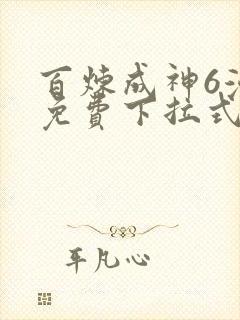 百炼成神6
免费下拉式
平凡心